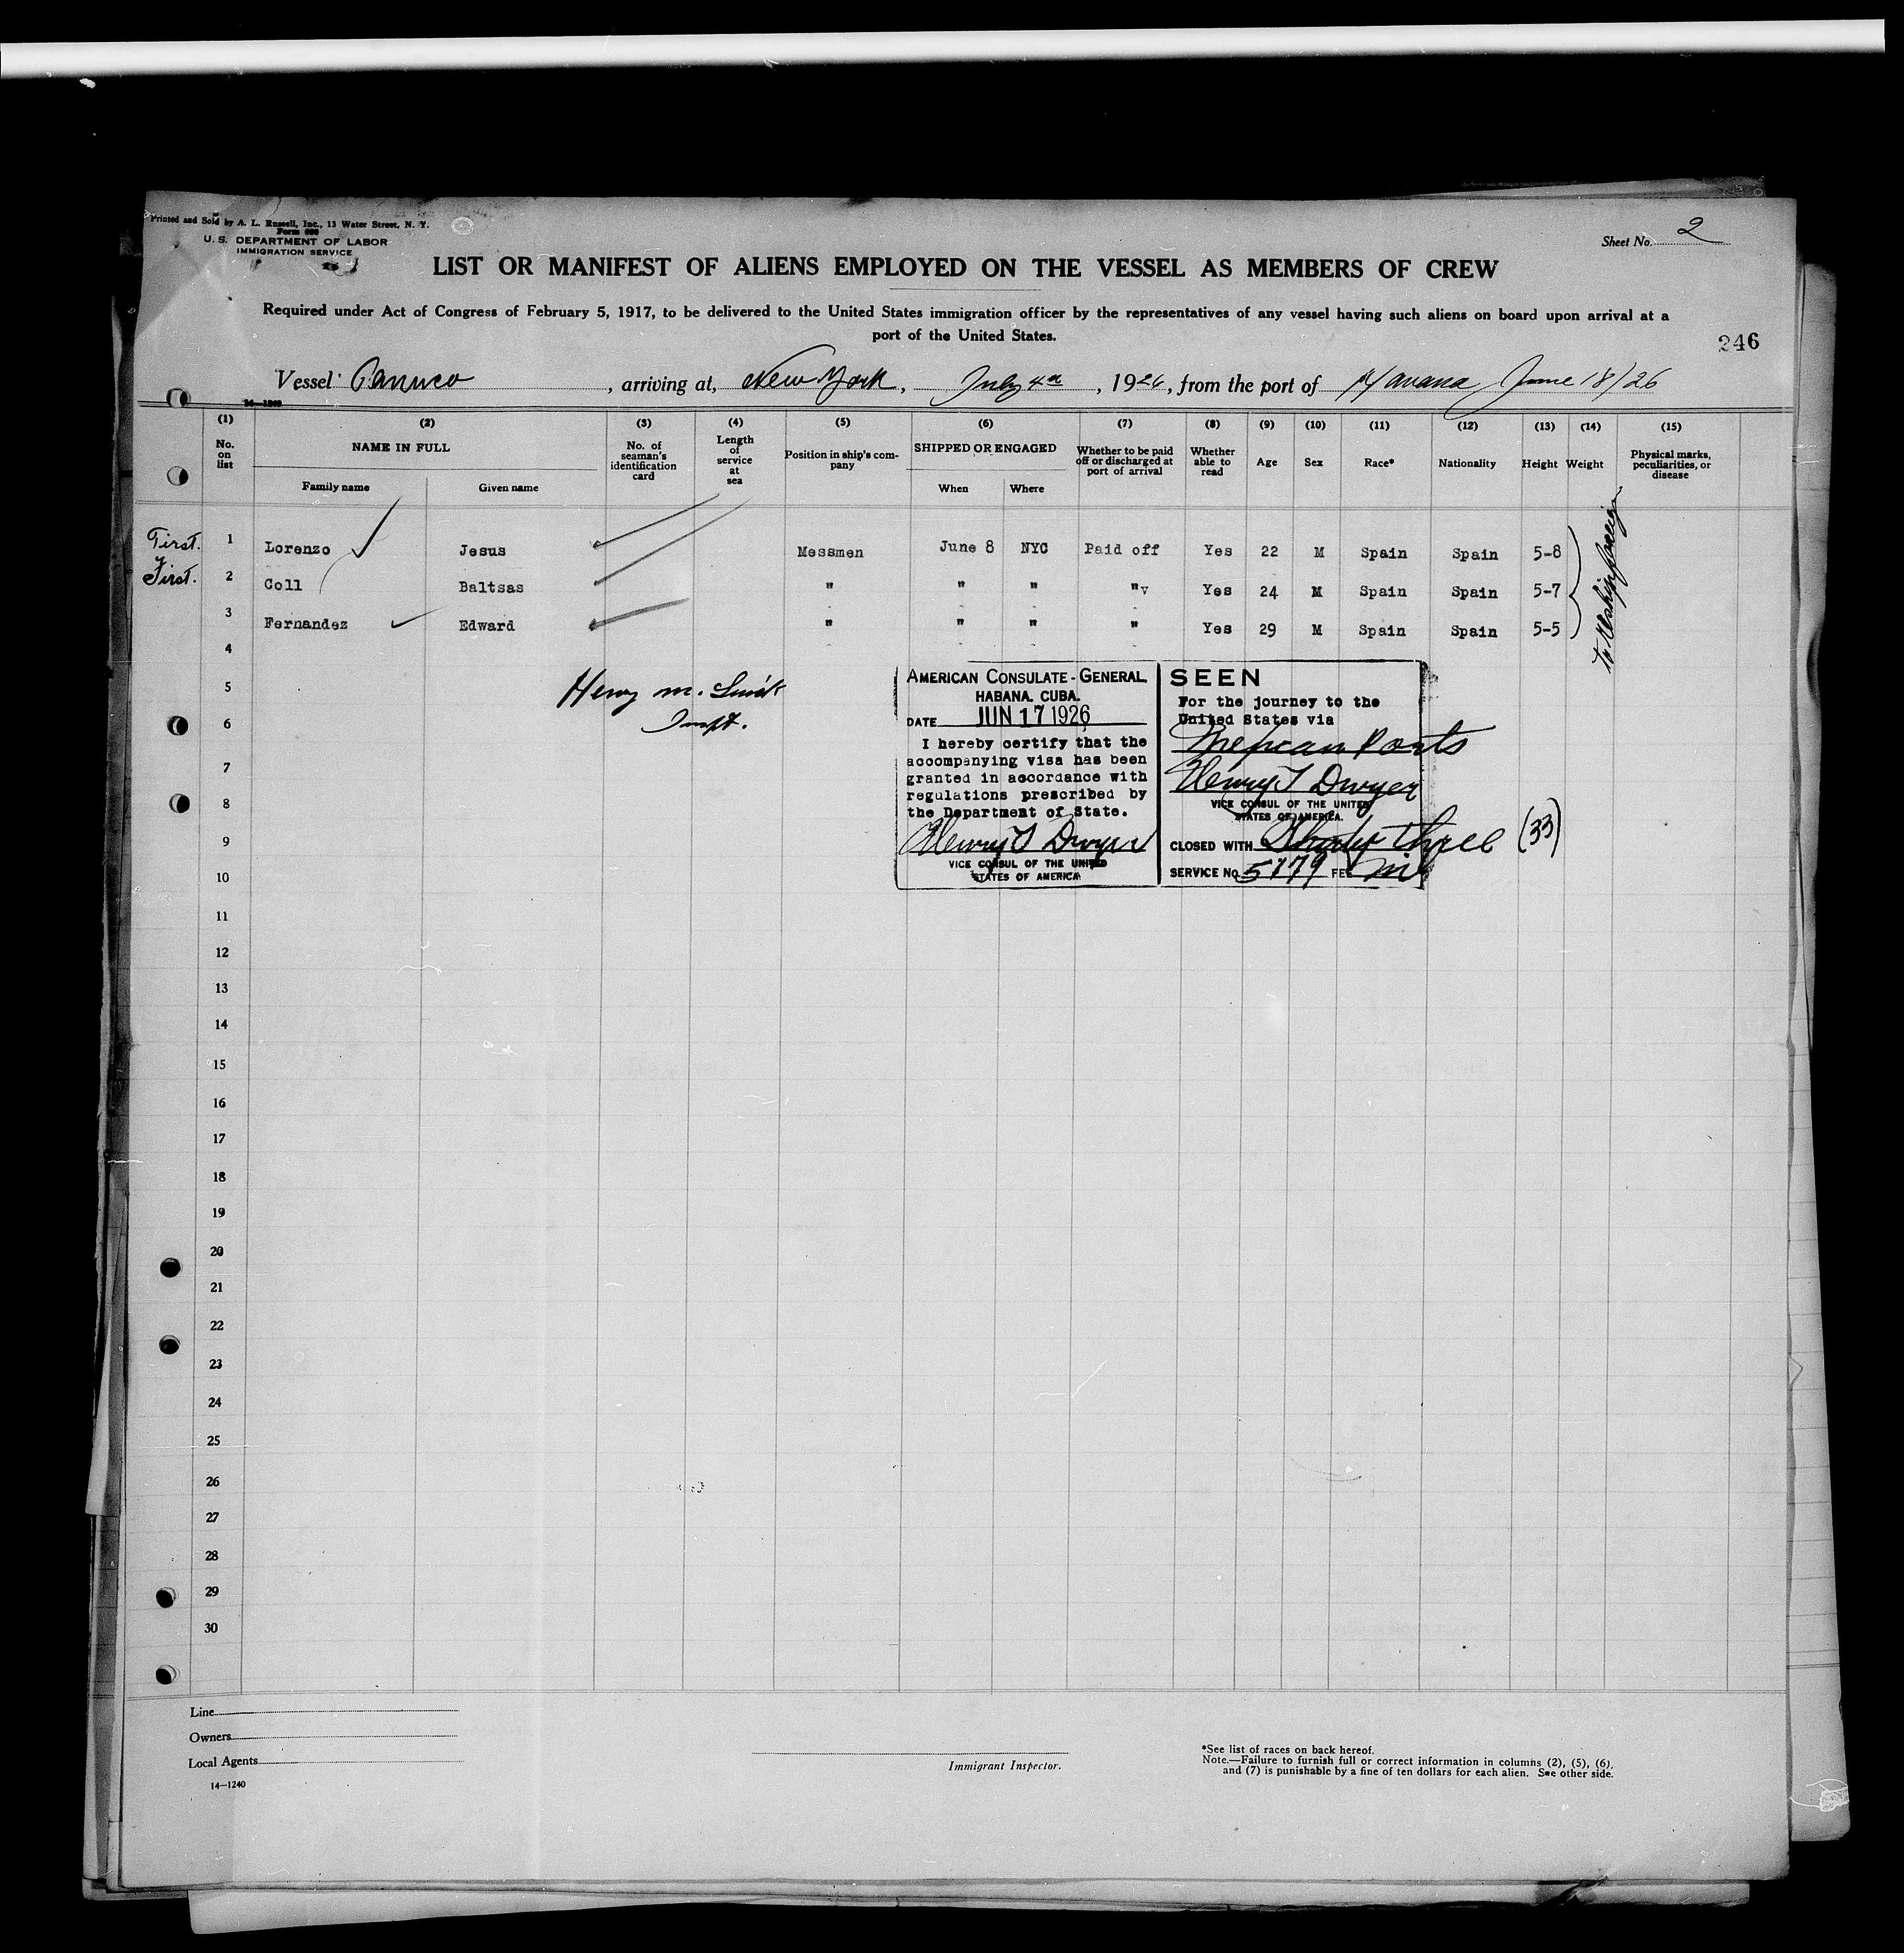 Printed and Sold by A. L. Russell, Inc., 13 Water Street, N. Y.
Form 680
U. S. DEPARTMENT OF LABOR
IMMIGRATION SERVICE
Sheet No. 2
LIST OR MANIFEST OF ALIENS EMPLOYED ON THE VESSEL AS MEMBERS OF CREW
Required under Act of Congress of February 5, 1917, to be delivered to the United States immigration officer by the representatives of any vessel having such aliens on board upon arrival at a
port of the United States.
246
Vessel Panuco, arriving at, New York, July 4th, 1926, from the port of Havana June 18/26
14—1240
(1) (2) (3) (4) (5) (6) (7) (8) (9) (10) (11) (12) (13) (14) (15)
No. on list
NAME IN FULL
Family name Given name
No. of seaman's identification card
Length of service at sea
Position in ship's company
SHIPPED OR ENGAGED
When Where
Whether to be paid off or discharged at port of arrival
Whether able to read
Age
Sex
Race*
Nationality
Height
Weight
Physical marks, peculiarities, or disease
First. 1 Lorenzo Jesus Messmen June 8 NYC Paid off Yes 22 M Spain Spain 5-8
First. 2 Coll Baltsas " " " "v Yes 24 M Spain Spain 5-7
3 Fernandez Edward " " " " Yes 29 M Spain Spain 5-5
To Reship foreign
4
5
6
7
8
9
10
11
12
13
14
15
16
17
18
19
20
21
22
23
24
25
26
27
28
29
30
Henry M.
Inspt.
AMERICAN CONSULATE-GENERAL,
HABANA, CUBA.
DATE JUN 17 1926
I hereby certify that the
accompanying visa has been
granted in accordance with
regulations prescribed by
the Department of State.
Henry T Dwyer
VICE CONSUL OF THE UNITED
STATES OF AMERICA
SEEN
For the journey to the
United States via
Mexican Ports
Henry T Dwyer
VICE CONSUL OF THE UNITED
STATES OF AMERICA.
CLOSED WITH Thirty three (33)
SERVICE NO. 5779 FEE
Line
Owners
Local Agents
14—1240
Immigrant Inspector.
*See list of races on back hereof.
Note.—Failure to furnish full or correct information in columns (2), (5), (6),
and (7) is punishable by a fine of ten dollars for each alien. See other side.